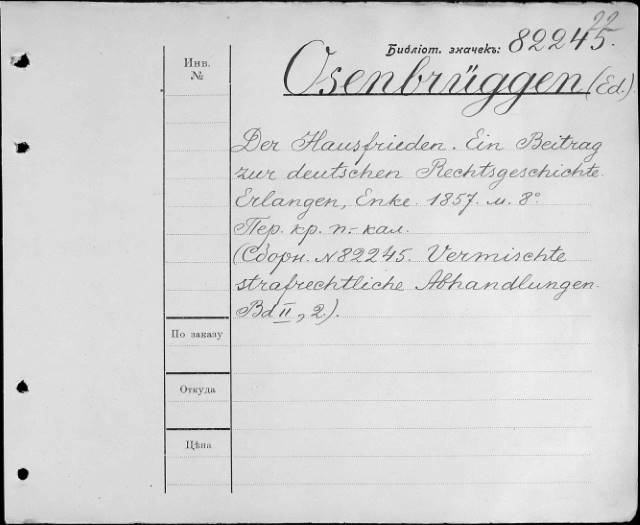 22
Библіот. значекъ: 82245.
Инв.
№
Osenbrüggen (Ed.)
Der Hausfrieden. Ein Beitrag
zur deutschen Rechtsgeschichte.
Erlangen, Enke. 1857. м. 8°
Пер. кр. п.-кал.
(Сборн. №82245. Vermischte
strafrechtliche Abhandlungen.
Bd II, 2.).
По заказу
Откуда
Цѣна